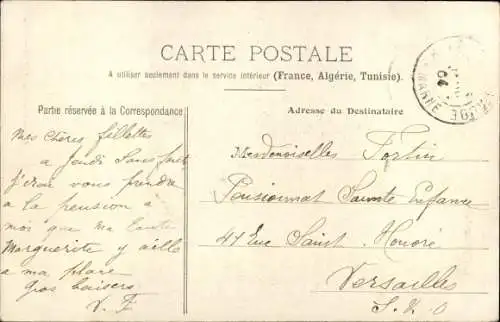 CARTE POSTALE
A utiliser seulement dans le service intérieur (France, Algérie, Tunisie).
Partie réservée à la Correspondance
Adresse du Destinataire
Mes chères fillettes
a Jeudi sans faute
J'irai vous prendre
a la pension a
moi que ma tante
Marguerite y aille
a ma place
Gros baisers
V. F.
Mesdemoiselles Fortin
Pensionnat Sainte Enfance
41 Rue Saint Honoré
Versailles
S. & O